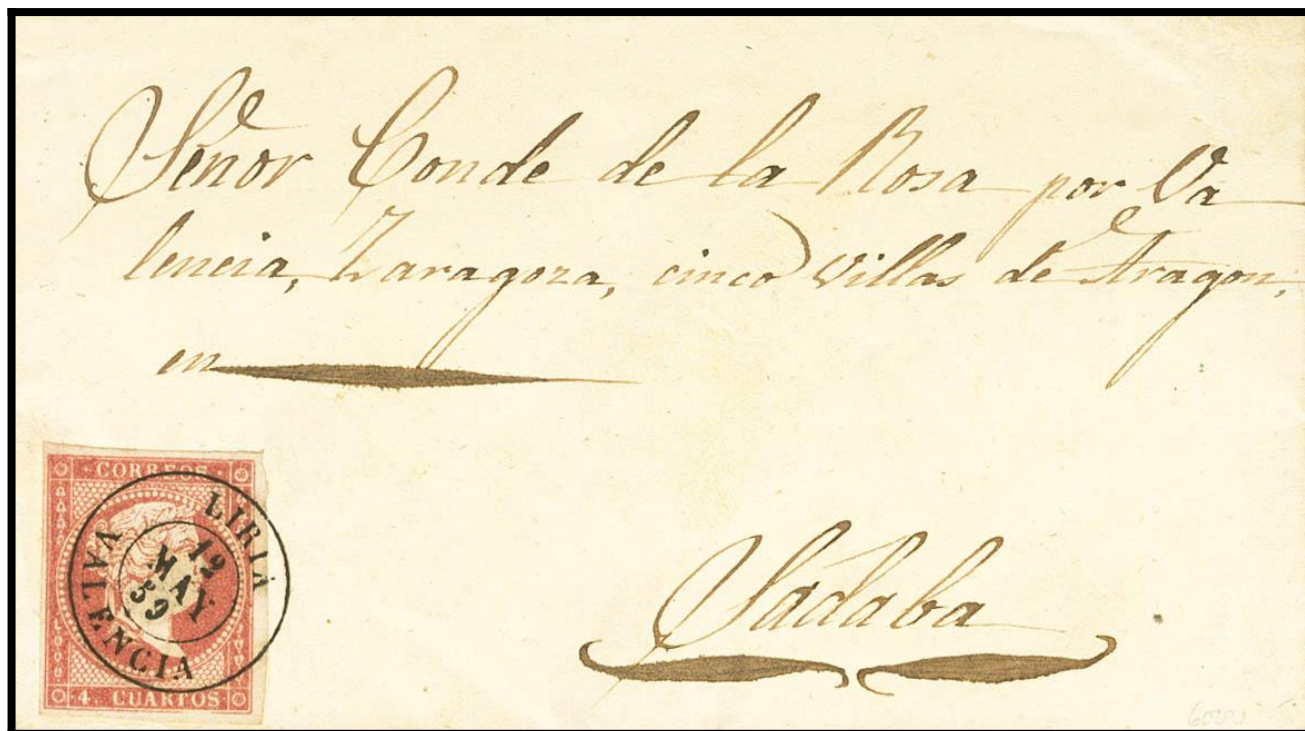 Señor Conde de la Rosa por Va
lencia, Zaragoza, cinco Villas de Aragon,
en
CORREOS
LIRIA
12
MAY
59
VALENCIA
4 CUARTOS
Sádaba
6000